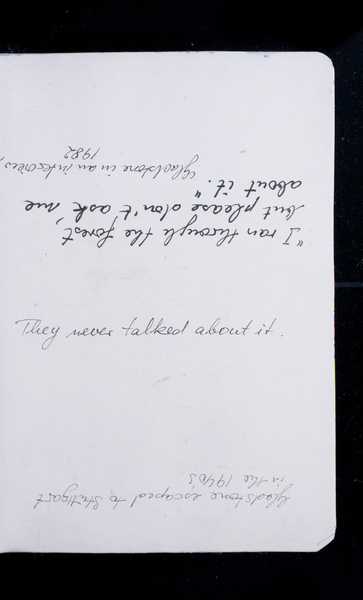 "I ran through the forest,
but please don't ask me
about it."
Gladstone in an interview,
1982
They never talked about it.
Gladstone escaped to Stuttgart
in the 1940's.